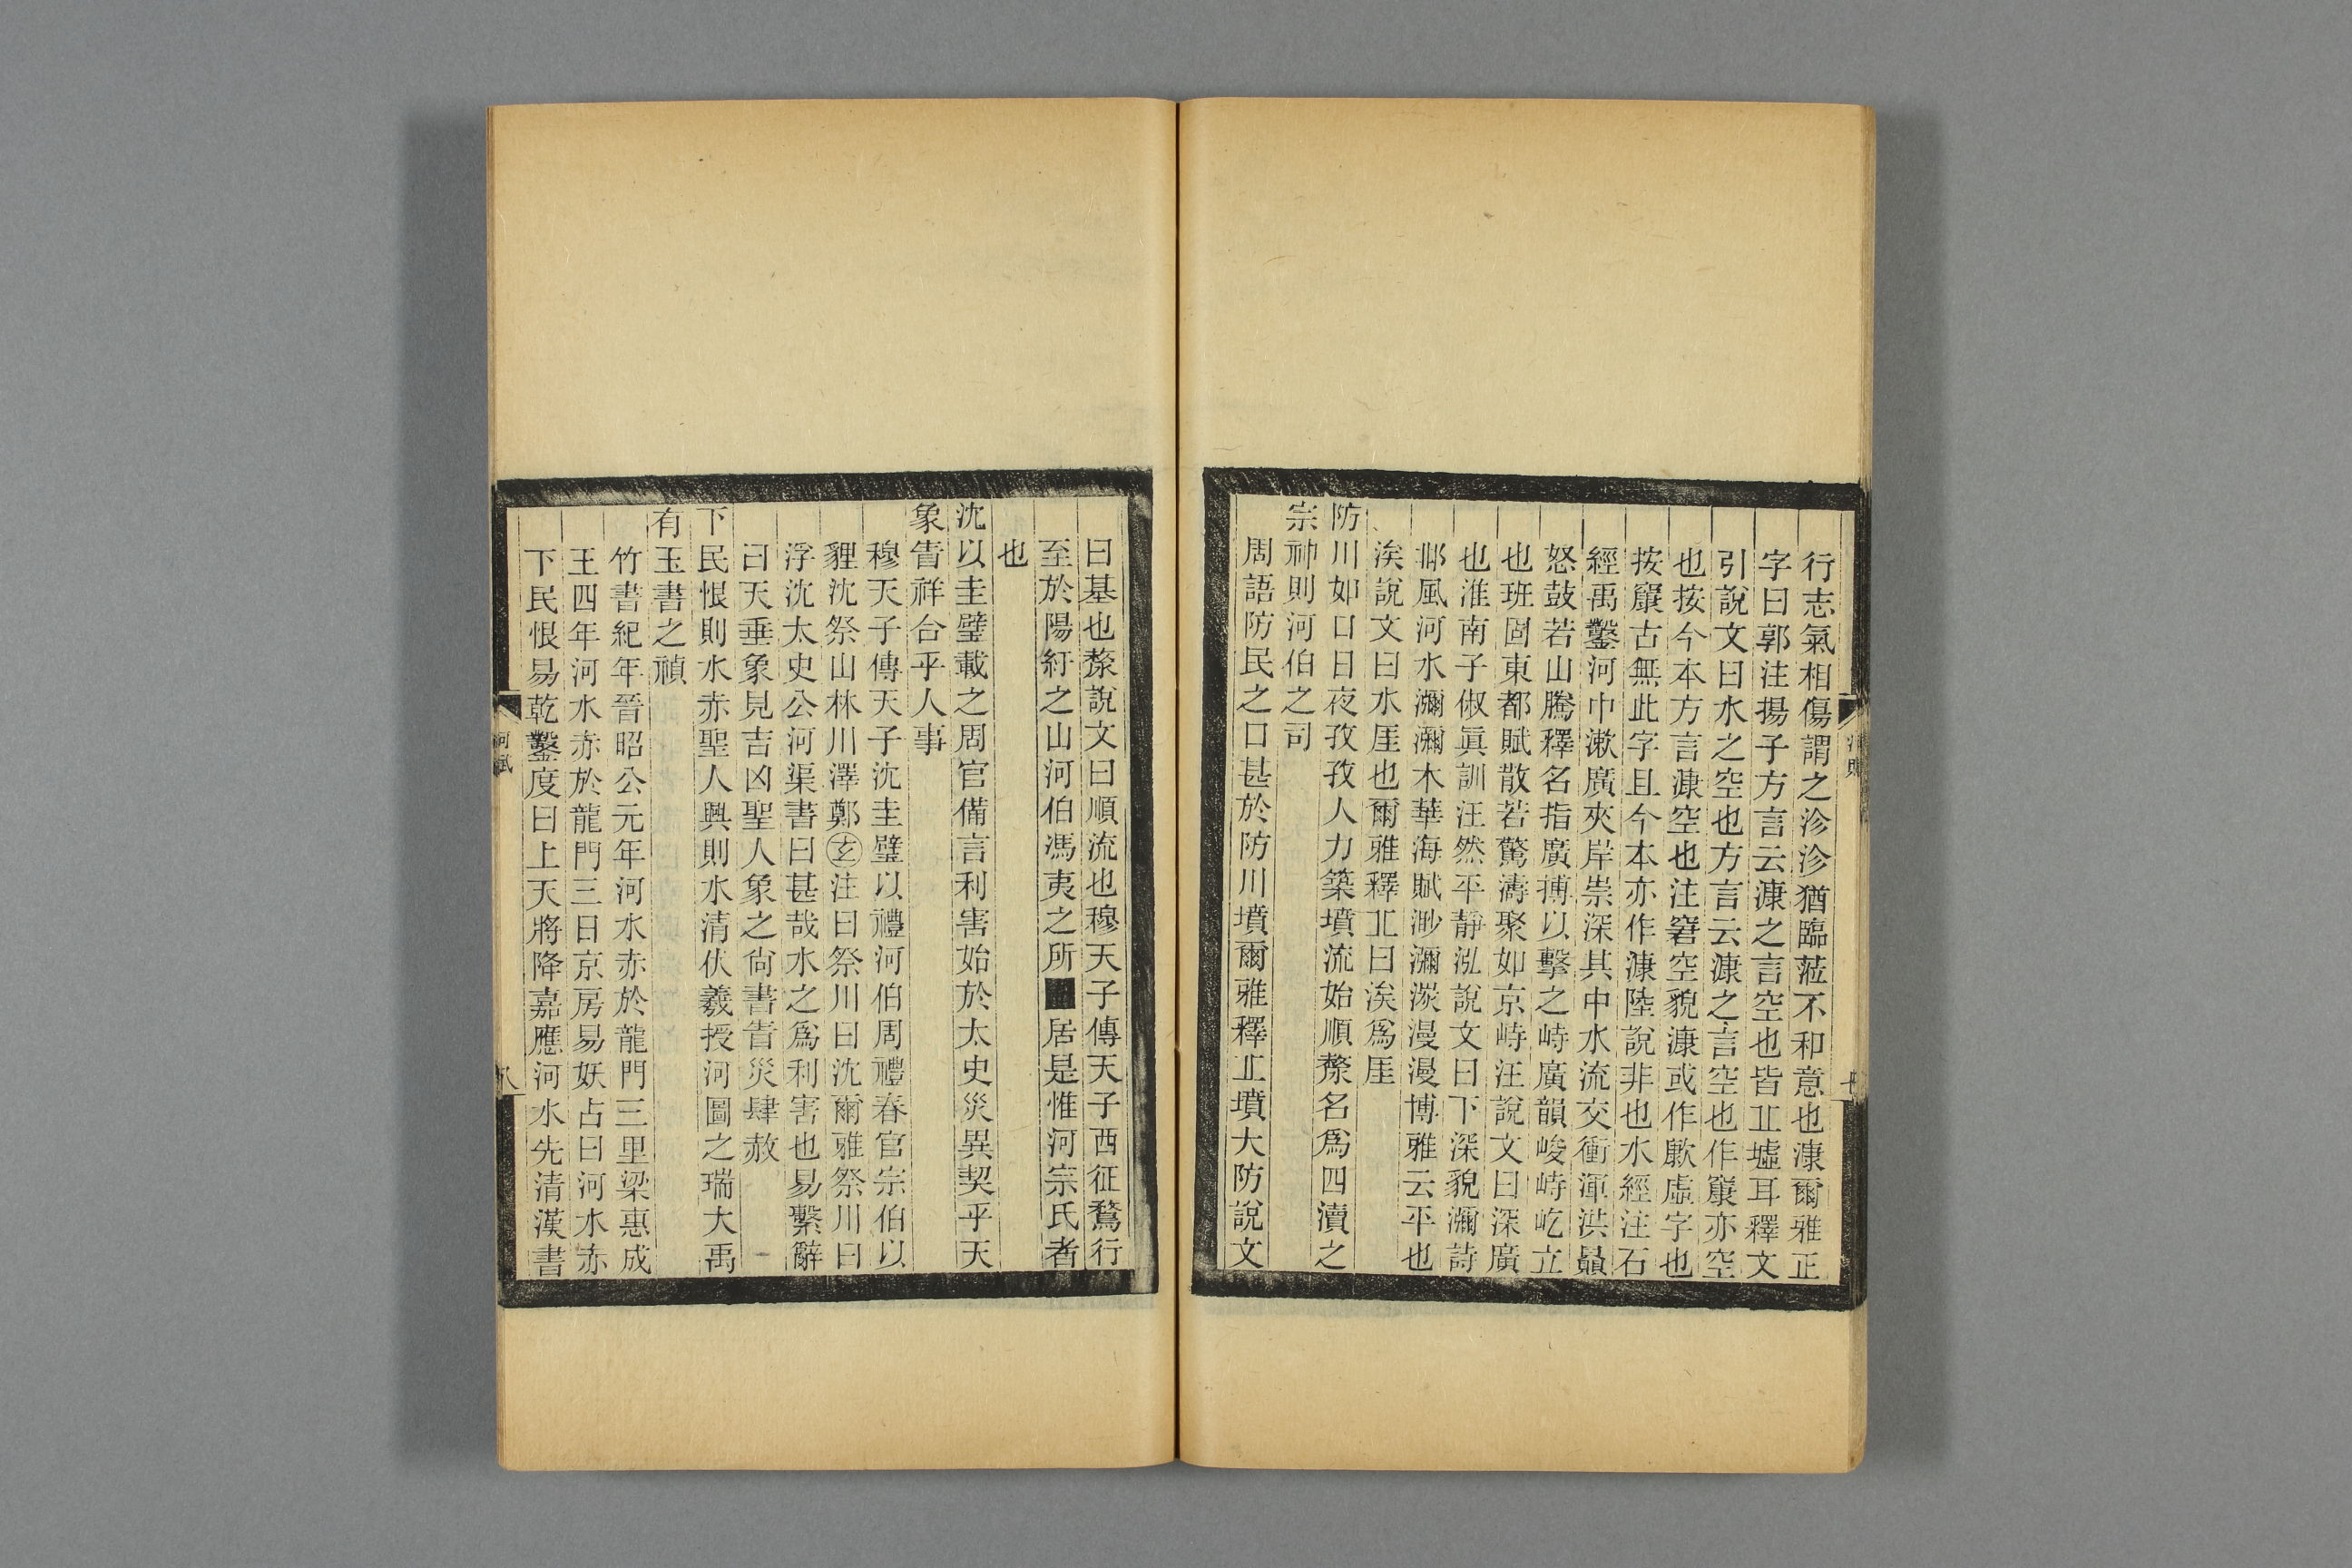 行志氣相傷謂之沴沴猶臨蒞不和意也漮爾雅正
字曰郭注揚子方言云漮之言空也皆丘墟耳釋文
引說文曰水之空也方言云漮之言空也作㝩亦空
也按今本方言漮空也注窘空貌漮或作歉虛字也
按㝩古無此字且今本亦作漮陸說非也水經注石
經禹鑿河中漱廣夾岸崇深其中水流交衝渾洪贔
怒鼓若山騰釋名指廣搏以擊之峙廣韻峻峙屹立
也班固東都賦散若驚濤聚如京峙汪說文曰深廣
也淮南子俶眞訓汪然平靜泓說文曰下深貌瀰詩
邶風河水瀰瀰木華海賦渺瀰湠漫漫博雅云平也
涘說文曰水厓也爾雅釋丘曰涘爲厓
防川如口日夜孜孜人力築墳流始順漦名爲四瀆之
宗神則河伯之司
周語防民之口甚於防川墳爾雅釋丘墳大防說文
曰墓也漦說文曰順流也穆天子傳天子西征鶩行
至於陽紆之山河伯馮夷之所■居是惟河宗氏者
也
沈以圭璧載之周官備言利害始於太史災異契乎天
象眚祥合乎人事
穆天子傳天子沈圭璧以禮河伯周禮春官宗伯以
貍沈祭山林川澤鄭玄注曰祭川曰沈爾雅祭川曰
浮沈太史公河渠書曰甚哉水之爲利害也易繫辭
曰天垂象見吉凶聖人象之尙書眚災肆赦
下民恨則水赤聖人興則水清伏羲授河圖之瑞大禹
有玉書之禎
竹書紀年晉昭公元年河水赤於龍門三里梁惠成
王四年河水赤於龍門三日京房易妖占曰河水赤
下民恨易乾鑿度曰上天將降嘉應河水先清漢書
河賦
八